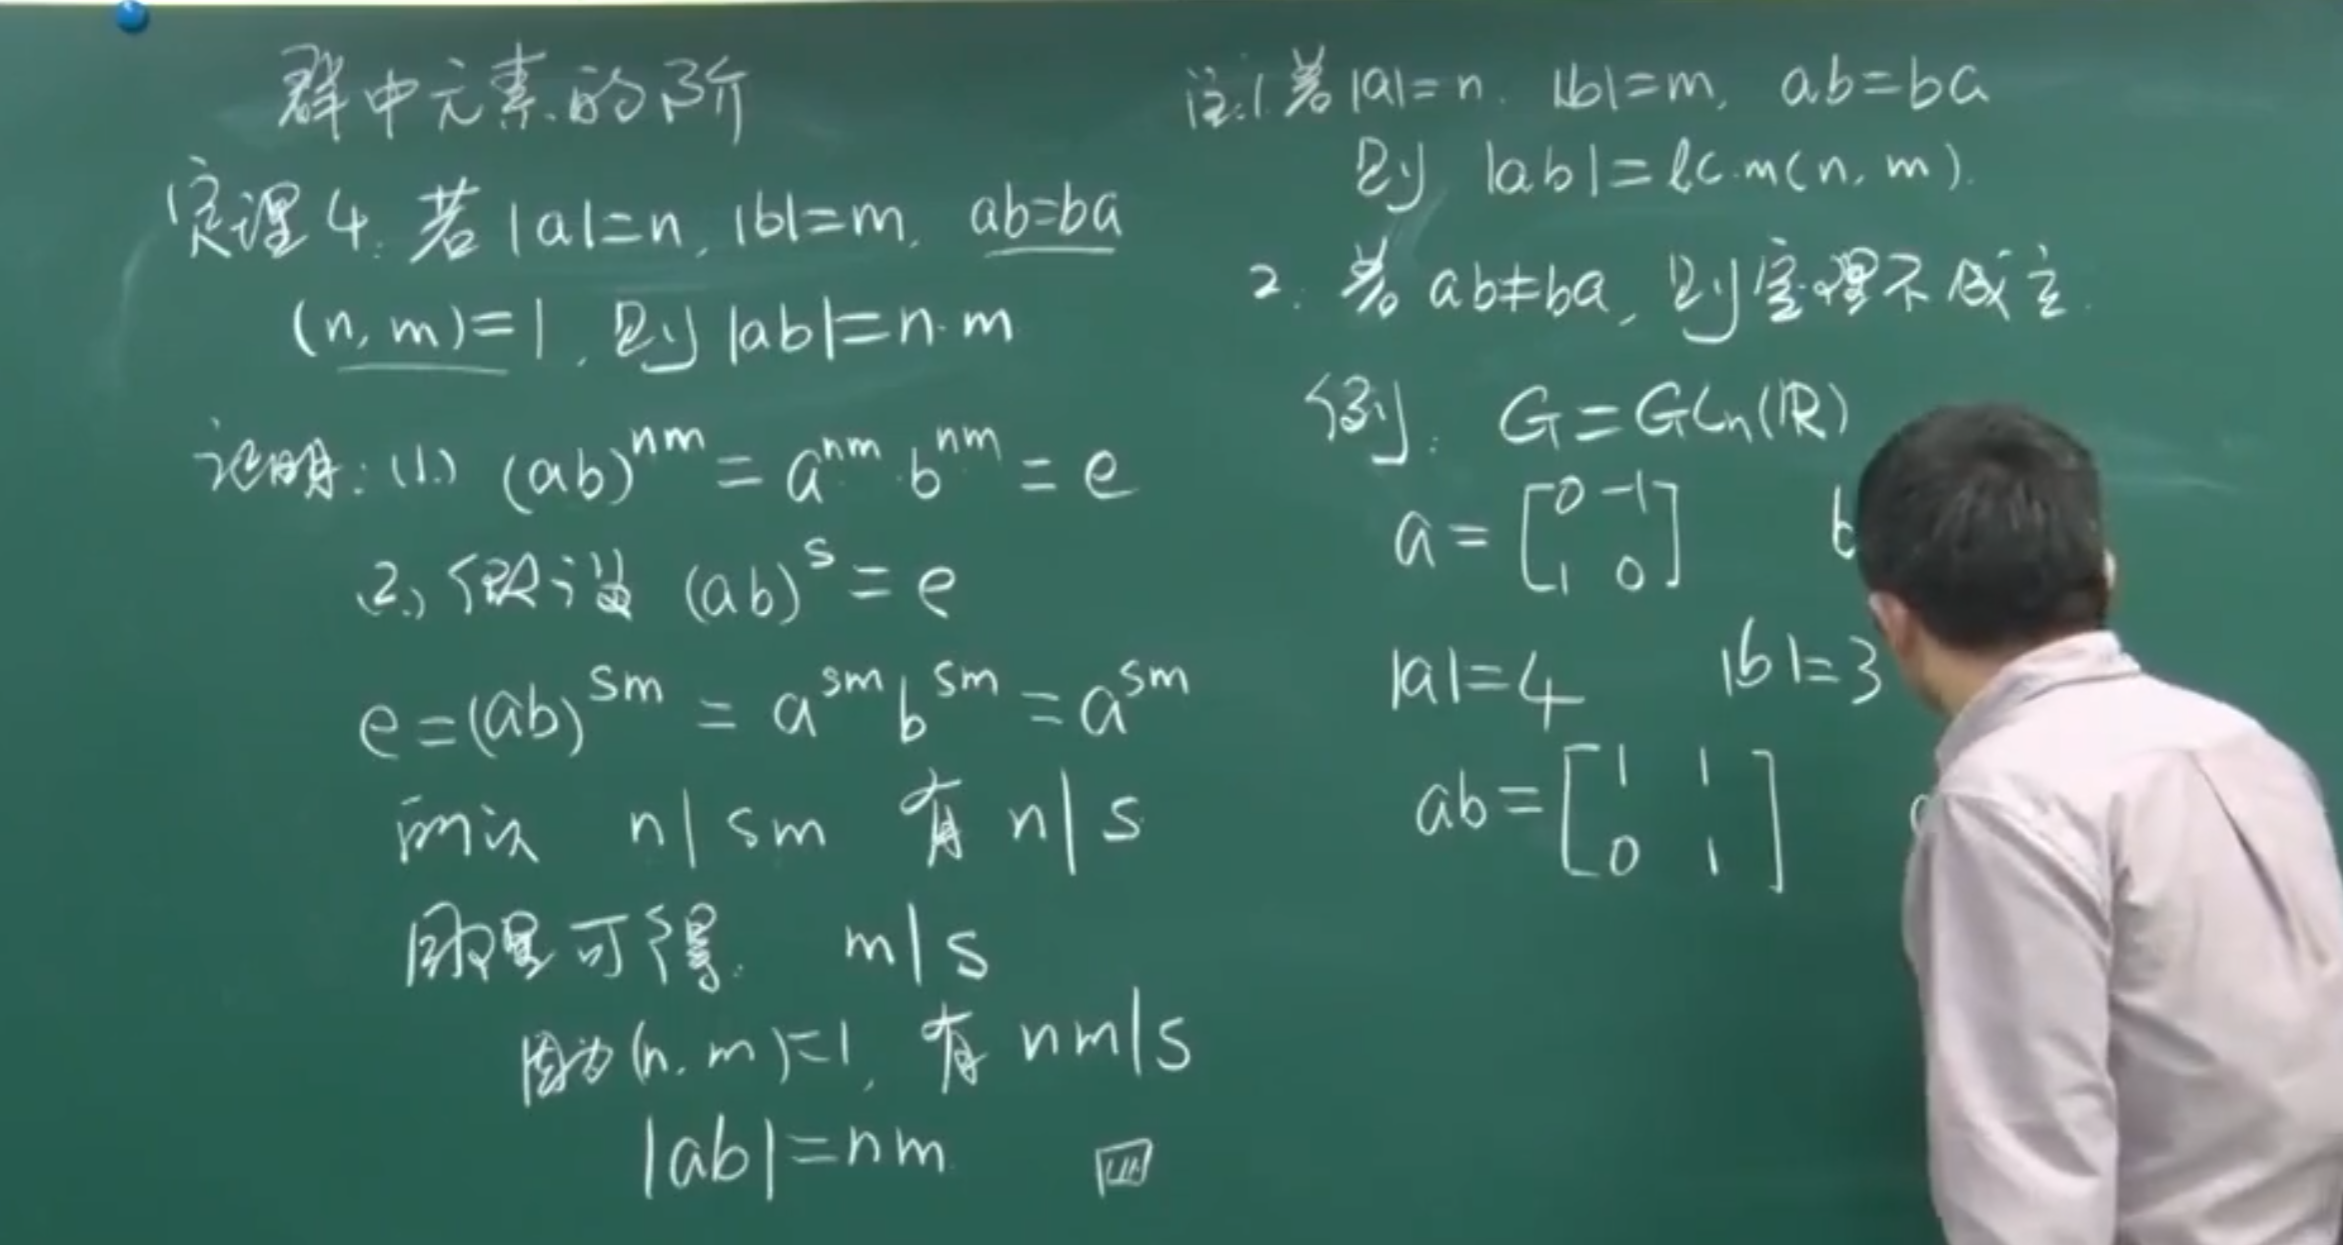 群中元素的阶
定理4. 若 |a|=n, |b|=m, ab=ba
(n, m)=1, 则 |ab|=n·m
证明: (1) (ab)^{nm} = a^{nm}·b^{nm} = e
(2) 假设 (ab)^s = e
e=(ab)^{sm} = a^{sm} b^{sm} = a^{sm}
所以 n|sm 有 n|s
同理可得. m|s
因为 (n, m)=1, 有 nm|s
|ab|=nm
注:1. 若 |a|=n. |b|=m, ab=ba
则 |ab|=lc.m(n, m).
2. 若 ab≠ba, 则定理不成立.
例: G=GLn(ℝ)
a= [0 -1
1 0] b
|a|=4 |b|=3
ab= [1 1
0 1]